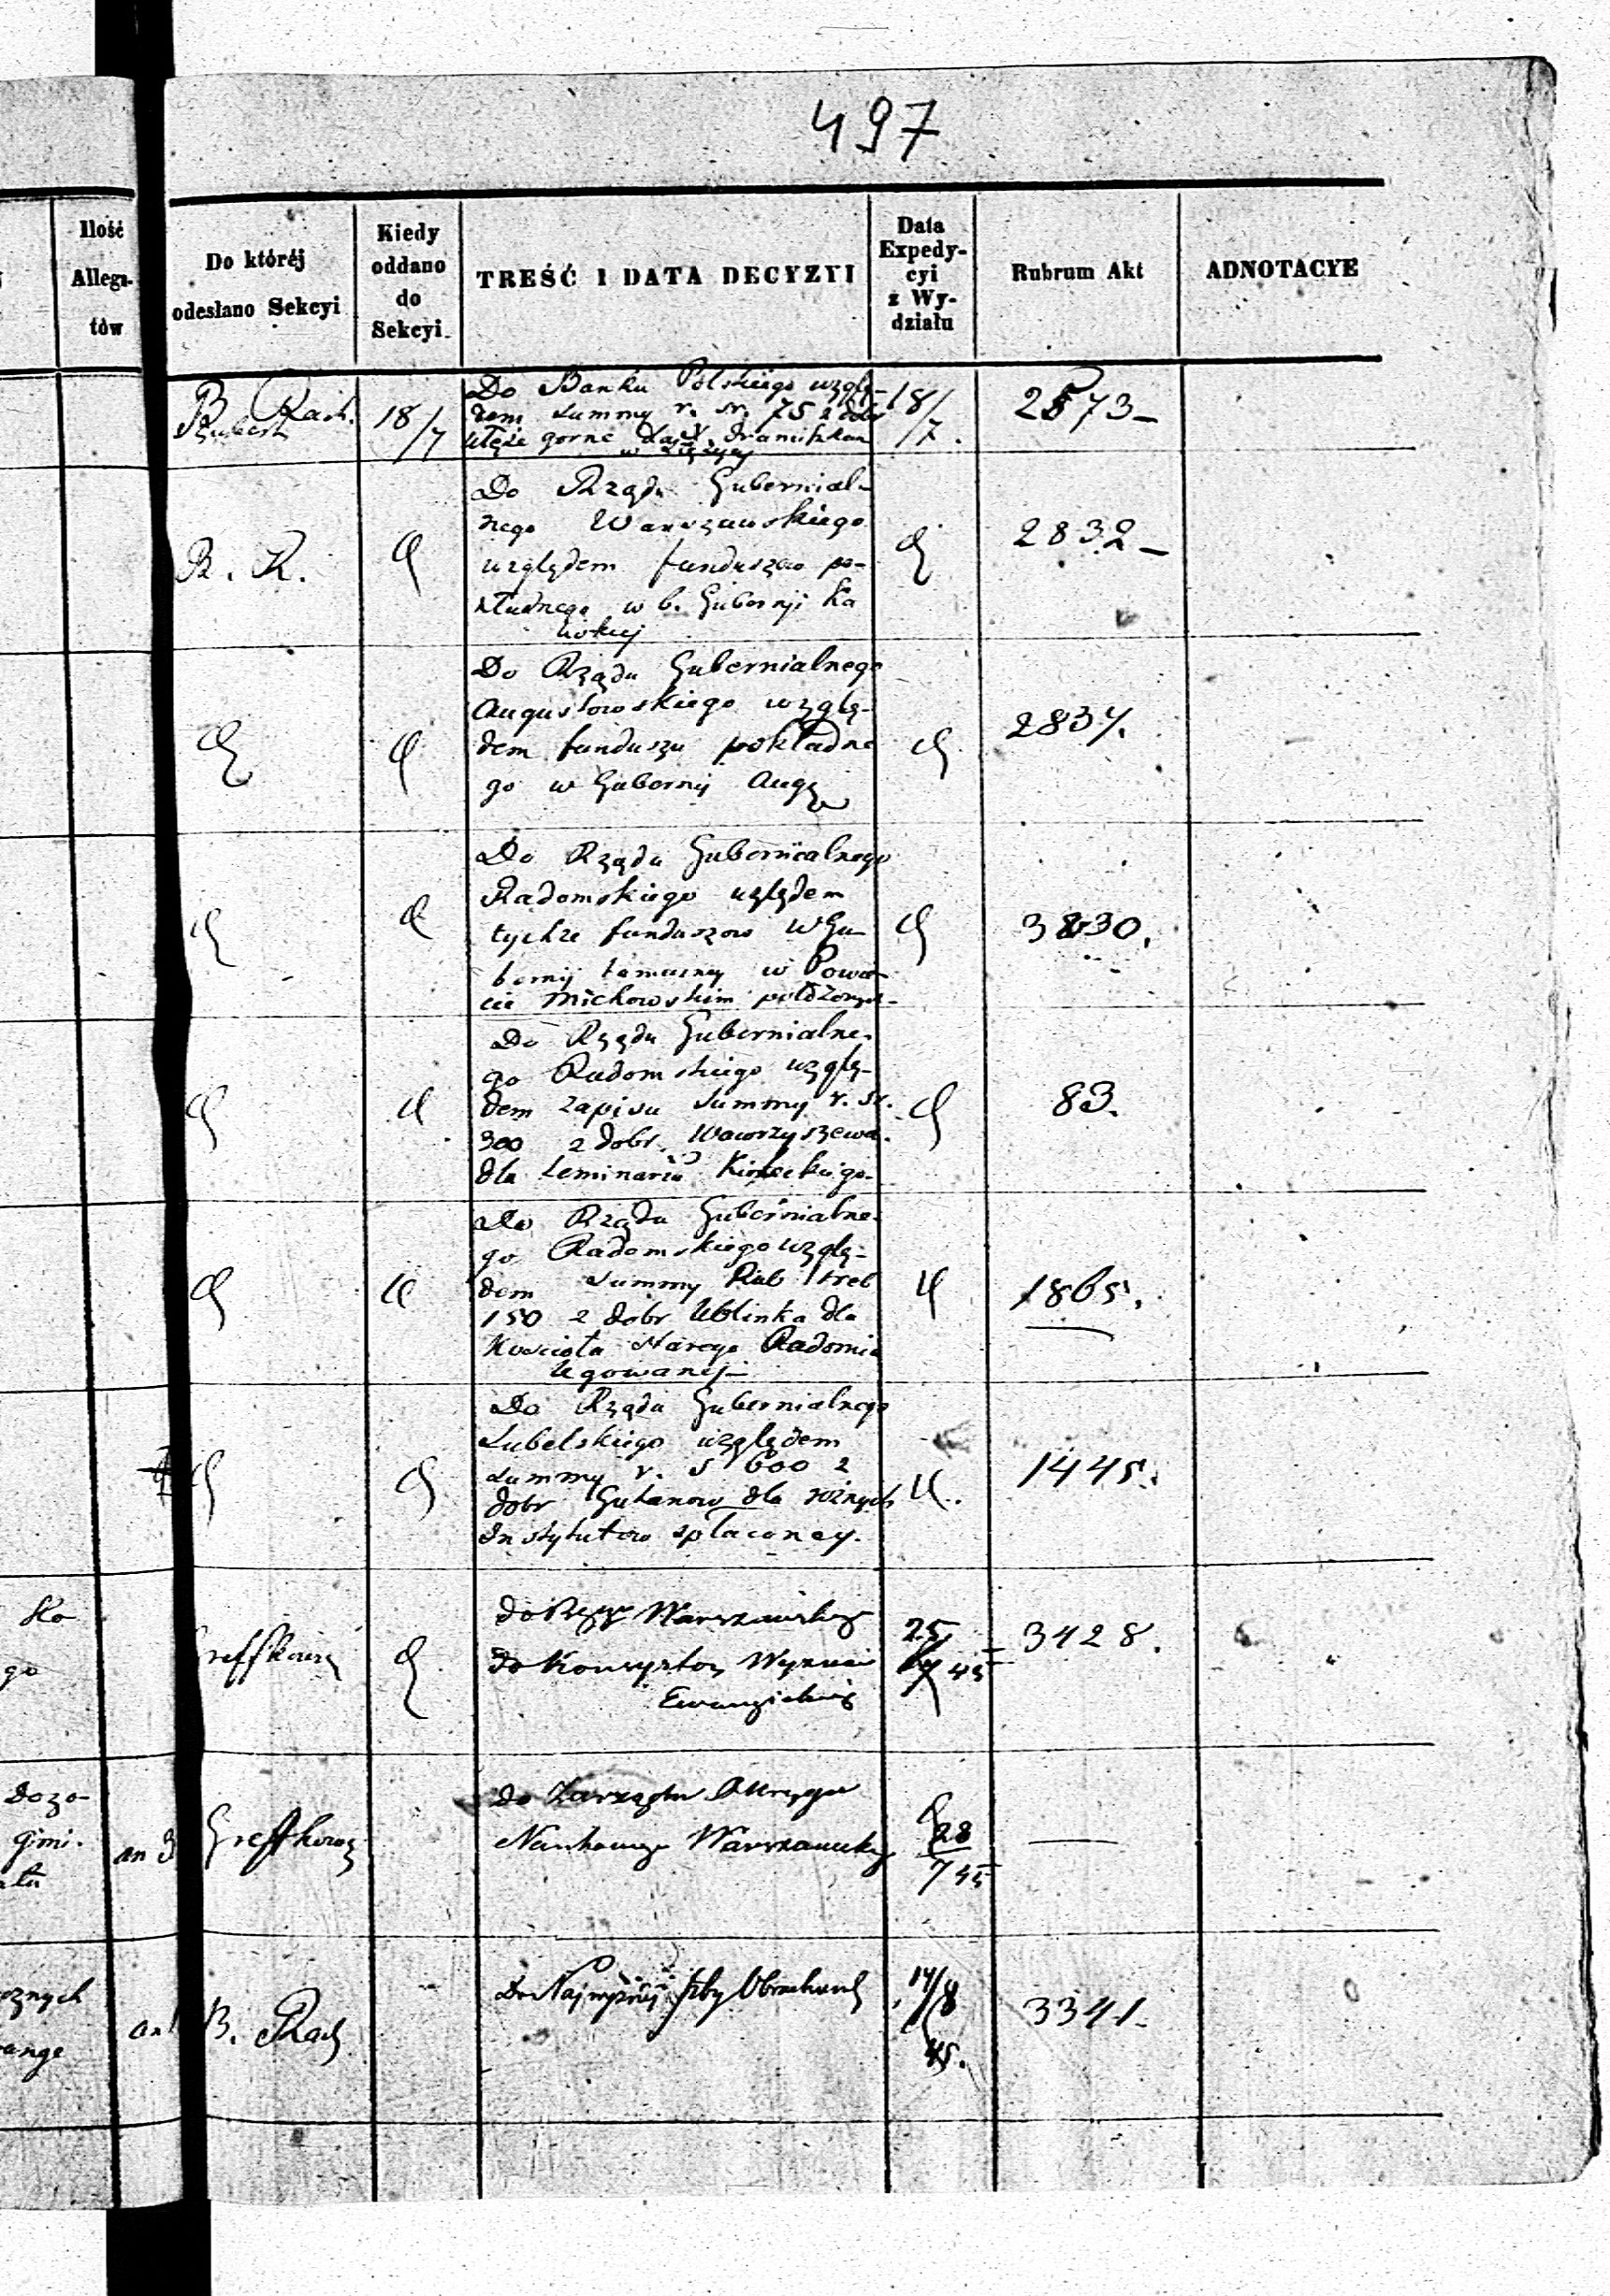 497
Ilość
Allega-
tów
Do któréj
odesłano Sekcyi
Kiedy
oddano
do
Sekcyi.
TREŚĆ I DATA DECYZYI
Data
Expedy-
cyi
z Wy-
działu
Rubrum Akt
ADNOTACYE
B Rach.
18/7
Do Banku Polskiego wzglę-
dem summy r. sr. 75 z dobr
górne
w Łęczycy
18/7.
2573-
B. R.
Do Rządu Gubernial-
nego Warszawskiego
względem funduszów po-
kładnego w b. Gubernji Ka
liskiej
2832-
Do Rządu Gubernialnego
Augustowskiego wzglę-
dem funduszu pokładne
go w Gubernij Aug
2834.
Do Rządu Gubernialnego
Radomskiego względem
tychże funduszow w Gu
bernij tamecznej w Powie-
cie Miechowskim położonych-
3830.
Do Rządu Gubernialne-
go Radomskiego wzglę-
dem zapisu summy r. sr.
300 z dobr Wawrzyszewa
dla Seminariu Kieleckiego-
83.
Do Rządu Gubernialne-
go Radomskiego wzglę-
dem summy Rub sreb
150 z dobr Wolinka dla
Kościoła Starego Radomia
legowanej-
1865.
Do Rządu Gubernialnego
Lubelskiego względem
summy r. s 600 z
dobr Gutanow dla rożnych
Instytutow spłaconey.
1445.
sko
go
Greffkowicz
Do Rzg Warszawskieg
Do Konsystorz Wyznań
Ewangielickieg
25/7 45
3428.
Dozo-
gimi.
atu
an 3
Greffkowicz
Do Zarządu Okręgu
Naukowego Warszawskieg
28
7 45
cznych
ange
an 1
B. Rach
Do Najwyższej Izby Obrachunk
14/8
45.
3341.